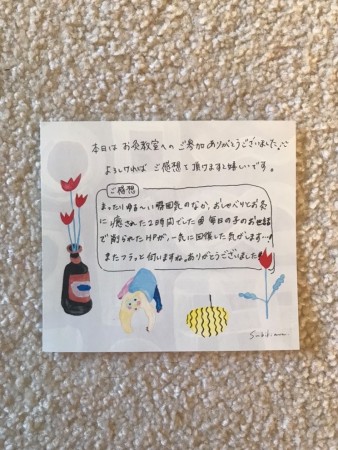 本日は お灸教室への ご参加 ありがとうございました。
よろしければ ご感想を 頂けますと嬉しいです。
ご感想
まったりゆる〜い雰囲気のなか、おしゃべりとお灸
に癒された2時間でした 毎日の子のお世話
で削られたHPが、一気に回復した気がします…!
またフラッと伺いますね。ありがとうございました